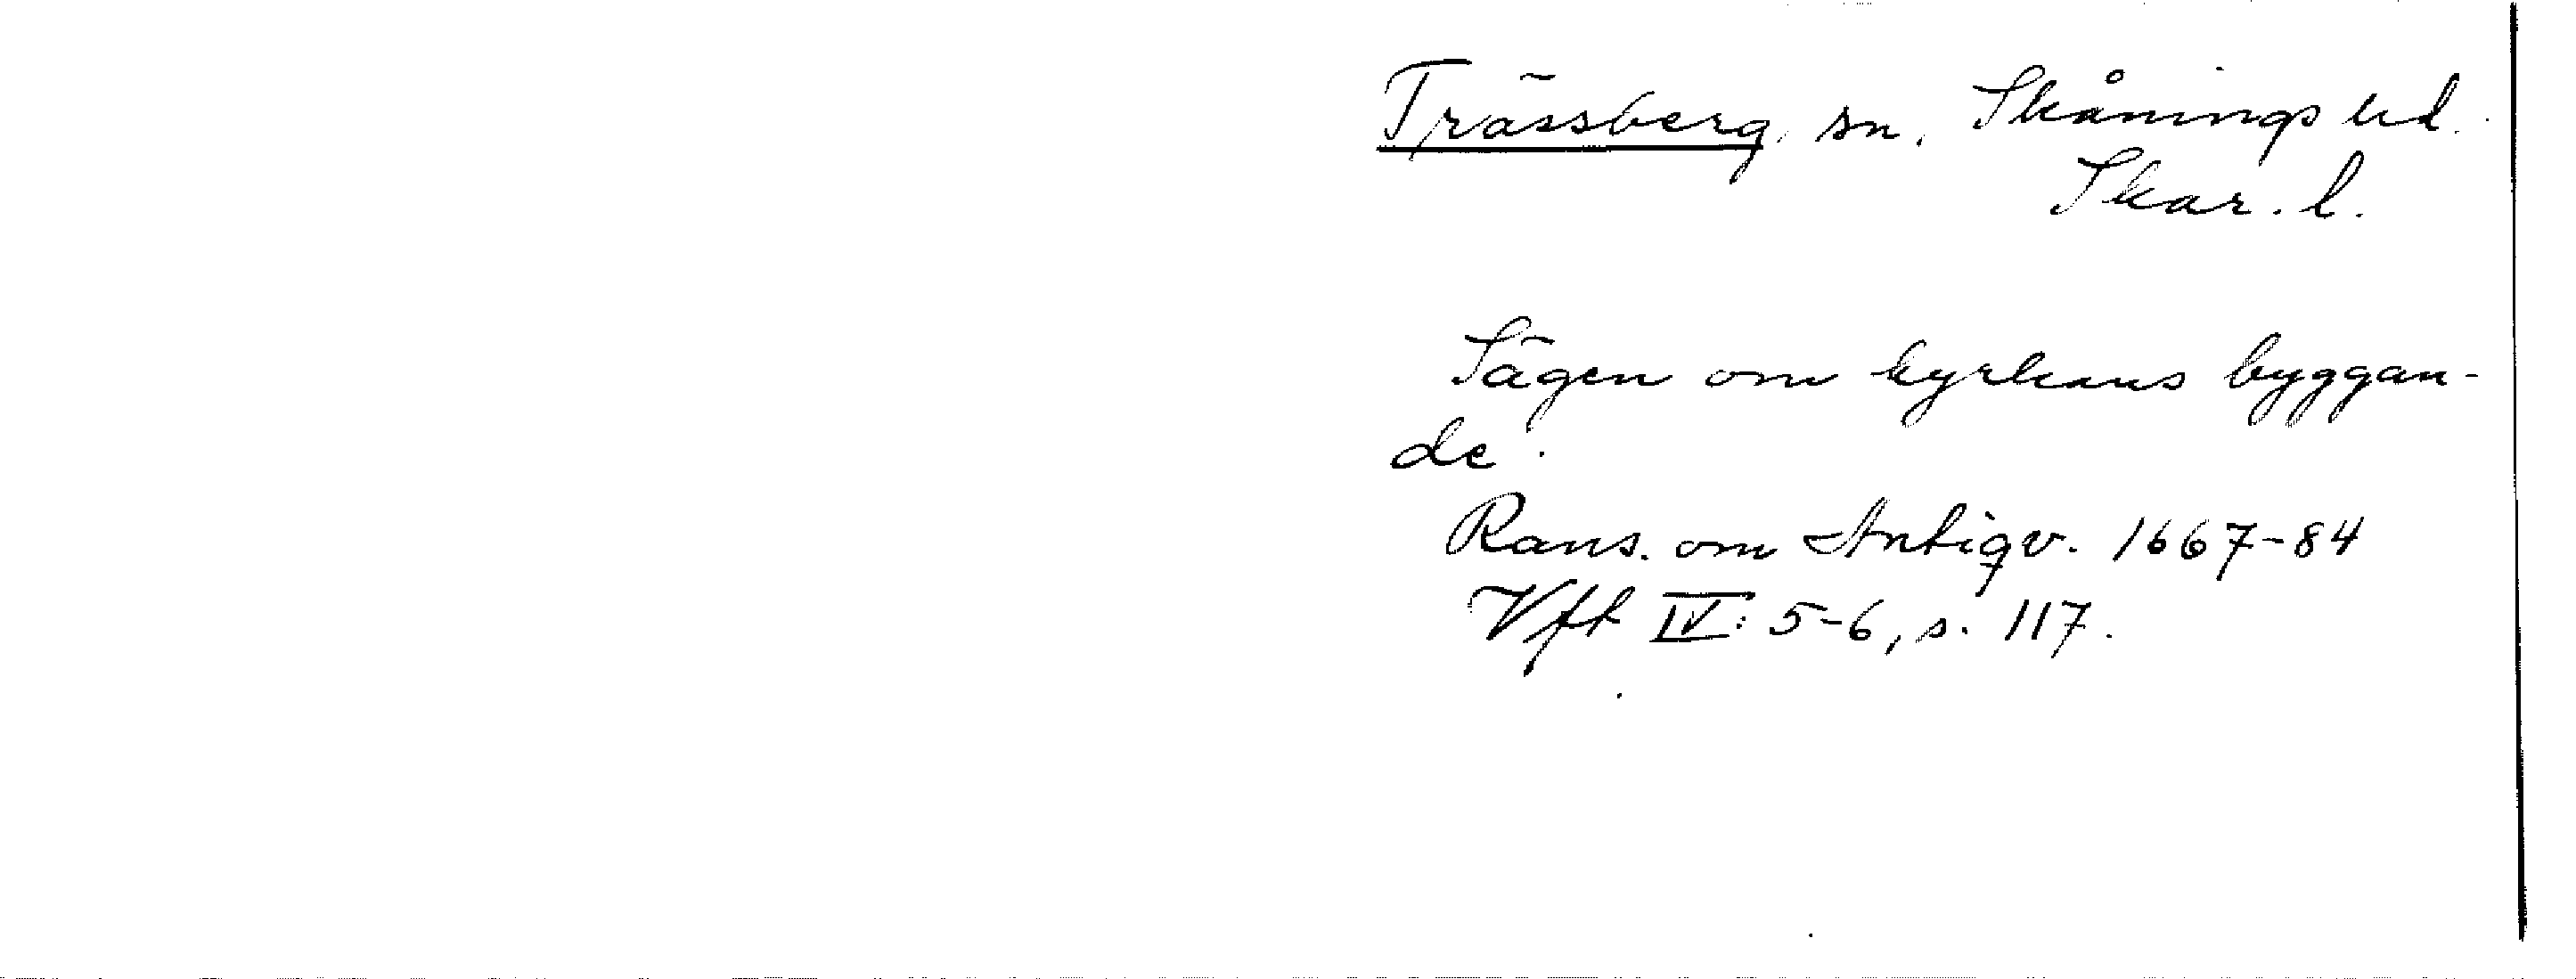 Trässberg, sn, Skånings hd.
Skar. l.
Sägen om kyrkans byggan-
de.
Rans. om Antiqv. 1667-84
Vft IV: 5-6, s. 117.